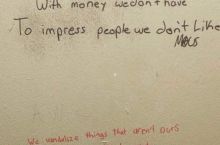 With money we don't have
To impress people we don't Like
We vandalize things that aren't ours